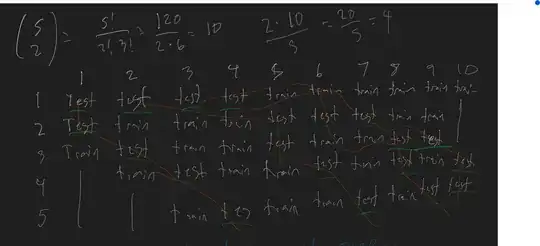 (5 2) = 5! / 2! 3! = 120 / 2·6 = 10 2·10 / 5 = 20 / 5 = 4
1 2 3 4 5 6 7 8 9 10
1 Test test test test train train train train train train
2 Test train train train test test test train train
3 Train test train train test train train test test
4 train test train train test train test train test
5 train tes train train test train test test